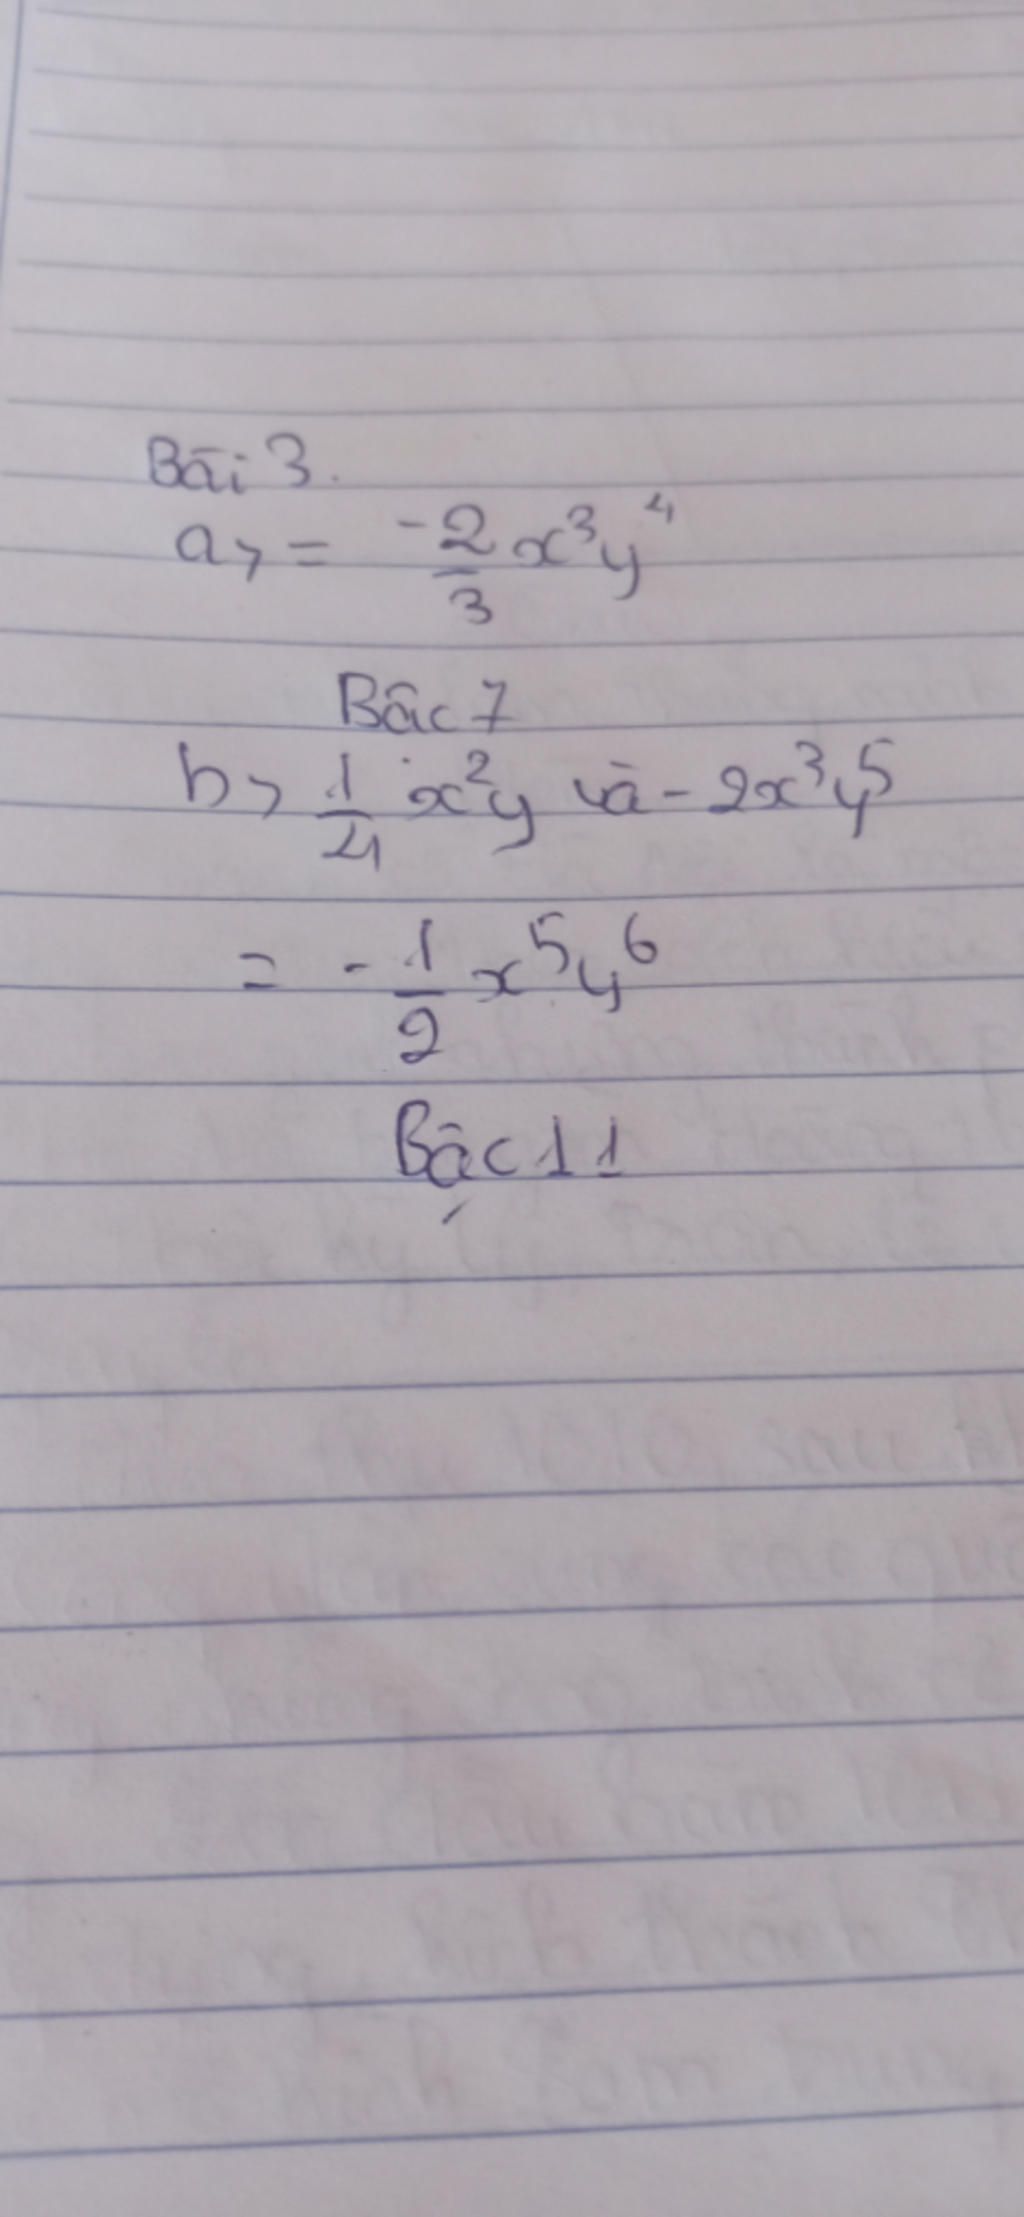 Bài 3.
a, = -2/3 x³y⁴
Bậc 7
b, 1/4 x²y và - 2x³y⁵
= - 1/2 x⁵y⁶
Bậc 11